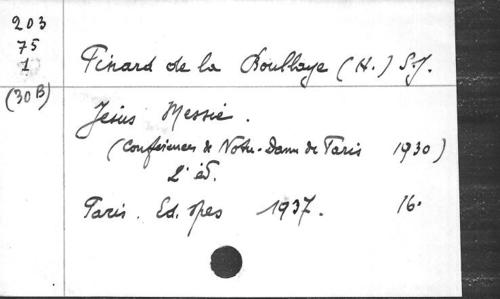 203
75
1
(30B)
Pinard de la Boullaye (H.) S.J.
Jésus Messie.
(Conférences de Notre-Dame de Paris 1930)
2e éd.
Paris. Ed. Spes 1937. 16°